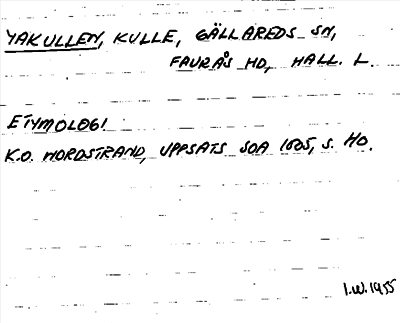 YAKULLEN, KULLE, GÄLLAREDS SN,
FAURÅS HD, HALL. L.
ETYMOLOGI
K.O. NORDSTRAND, UPPSATS SOA 1605, S. 40.
I.W. 1955